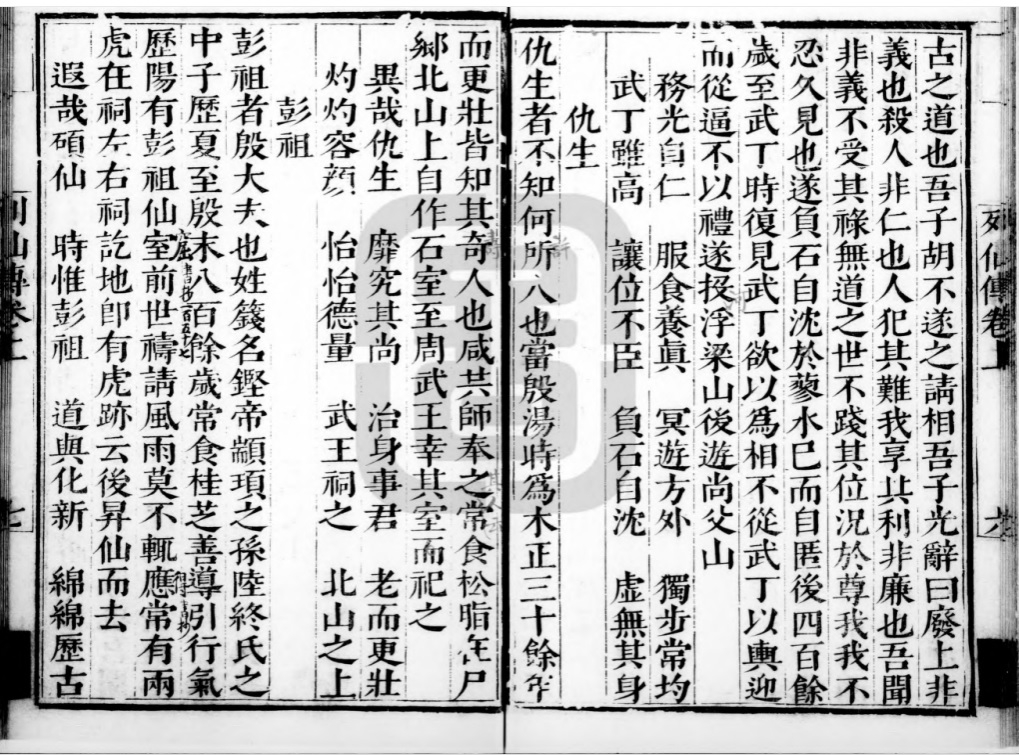 古之道也吾子胡不遂之請相吾子光辭曰廢上非
義也殺人非仁也人犯其難我享其利非廉也吾聞
非義不受其祿無道之世不踐其位況於尊我我不
忍久見也遂負石自沈於蓼水巳而自匿後四百餘
歲至武丁時復見武丁欲以爲相不從武丁以輿迎
而從逼不以禮遂投浮梁山後遊尚父山
務光自仁 服食養眞 冥遊方外 獨步常均
武丁雖高 讓位不臣 負石自沈 虛無其身
仇生
仇生者不知何所人也當殷湯時爲木正三十餘年
而更壯皆知其奇人也咸共師奉之常食松脂在尸
鄉北山上自作石室至周武王幸其室而祀之
異哉仇生 靡究其尚 治身事君 老而更壯
灼灼容顏 怡怡德量 武王祠之 北山之上
彭祖
彭祖者殷大夫也姓籛名鏗帝顓頊之孫陸終氏之
中子歷夏至殷末八百餘歲常食桂芝善導引行氣
歷陽有彭祖仙室前世禱請風雨莫不輒應常有兩
虎在祠左右祠訖地卽有虎跡云後昇仙而去
遐哉碩仙 時惟彭祖 道與化新 綿綿歷古
列仙傳卷上
六
列仙傳卷上
七